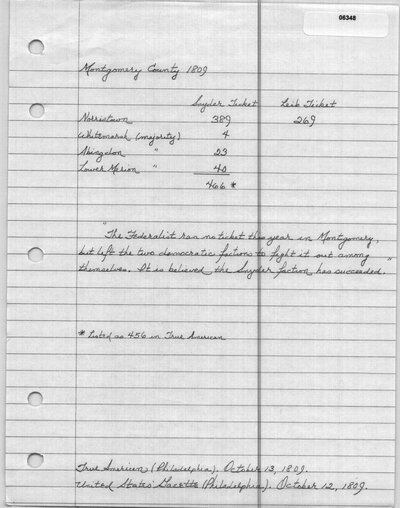 06348
Montgomery County 1809
Snyder Ticket Leib Ticket
Norristown 389 269
Whitemarsh (majority) 4
Abingdon " 23
Lower Merion " 40
466 *
"The Federalist ran no ticket this year in Montgomery,
but left the two democratic factions to fight it out among
themselves. It is believed the Snyder faction has succeeded."
* Listed as 456 in True American
True American (Philadelphia). October 13, 1809.
United States' Gazette (Philadelphia). October 12, 1809.